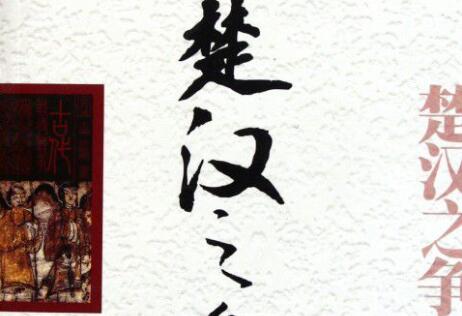 楚汉之
楚汉之争
古代